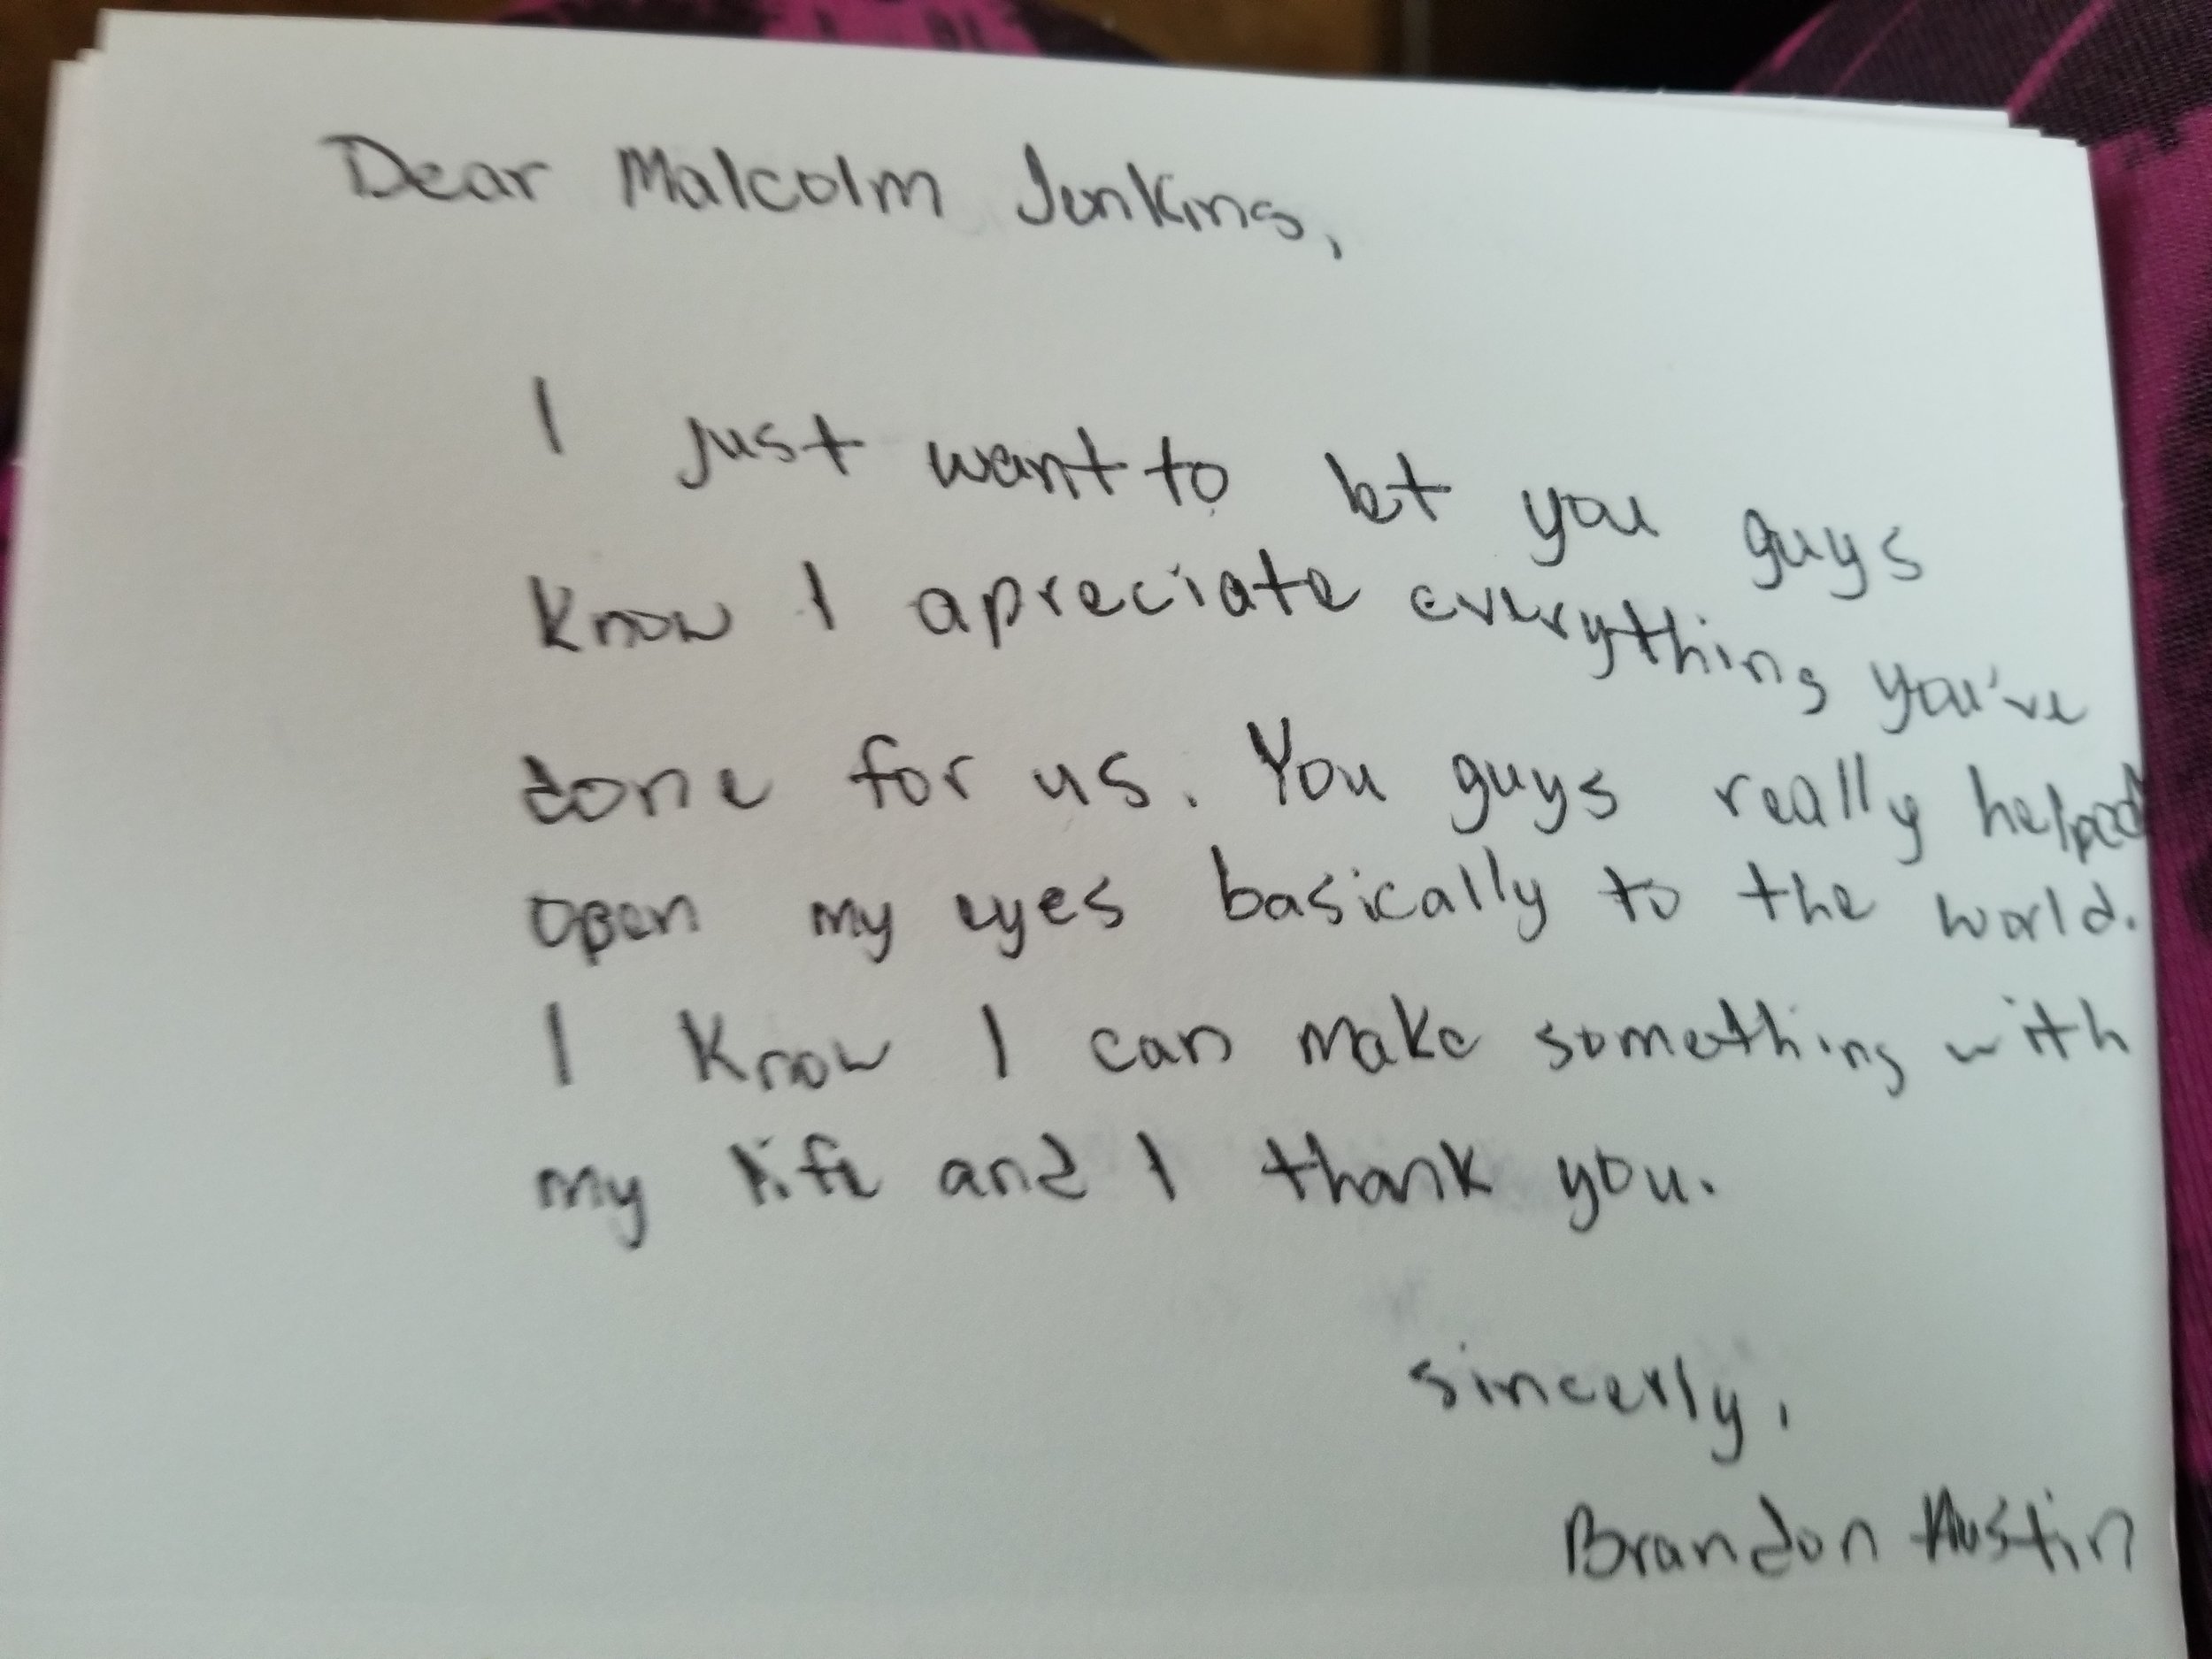 Dear Malcolm Jenkins,
I just want to let you guys
know I apreciate everything you've
done for us. You guys really helped
open my eyes basically to the world.
I know I can make something with
my life and I thank you.
sincerly,
Brandon Austin